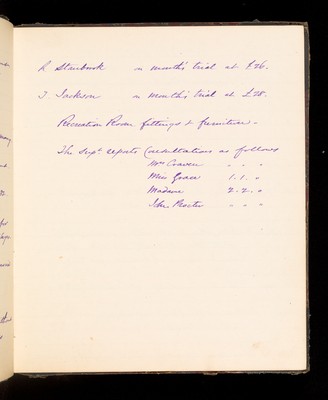 R. Strubrook on month's trial at £26.
J. Jackson on month's trial at £28.
Recreation Room fittings & furniture.-
The Supt reports Consultations as follows
Mrs Craven " " "
Miss Grace 1. 1. "
Madame 2. 2. "
John Proctor " " "